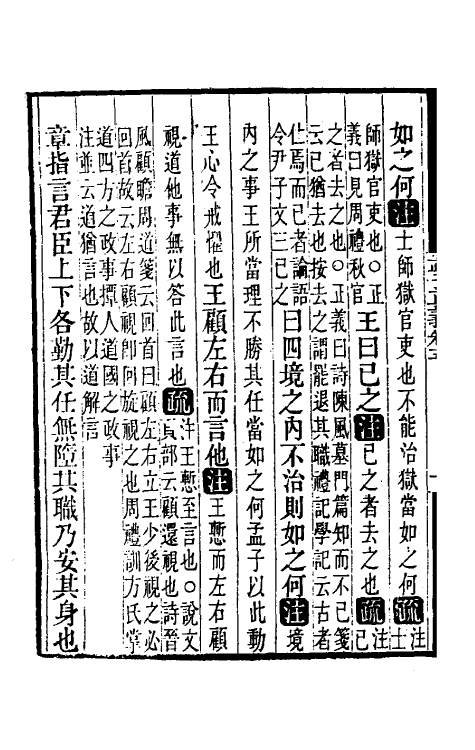 如之何注士師獄官吏也不能治獄當如之何疏注士
師獄官吏也○正
義曰見周禮秋官
王曰已之注已之者去之也疏注已
之者去之也○正義曰詩陳風墓門篇知而不已箋
云已猶去也按去之謂罷退其職禮記學記云古者
仕焉而已者論語
令尹子文三已之
曰四境之內不治則如之何注境
內之事王所當理不勝其任當如之何孟子以此動
王心令戒懼也王顧左右而言他注王慙而左右顧
視道他事無以答此言也疏
注王慙至言也○說文
頁部云顧還視也詩晉
風顧瞻周道箋云回首曰顧左右立王少後視之必
回首故云左右顧視卽回旋視之也周禮訓方氏掌
道四方之政事撢人道國之政事
注並云道猶言也故以道解言
章指言君臣上下各勤其任無墮其職乃安其身也